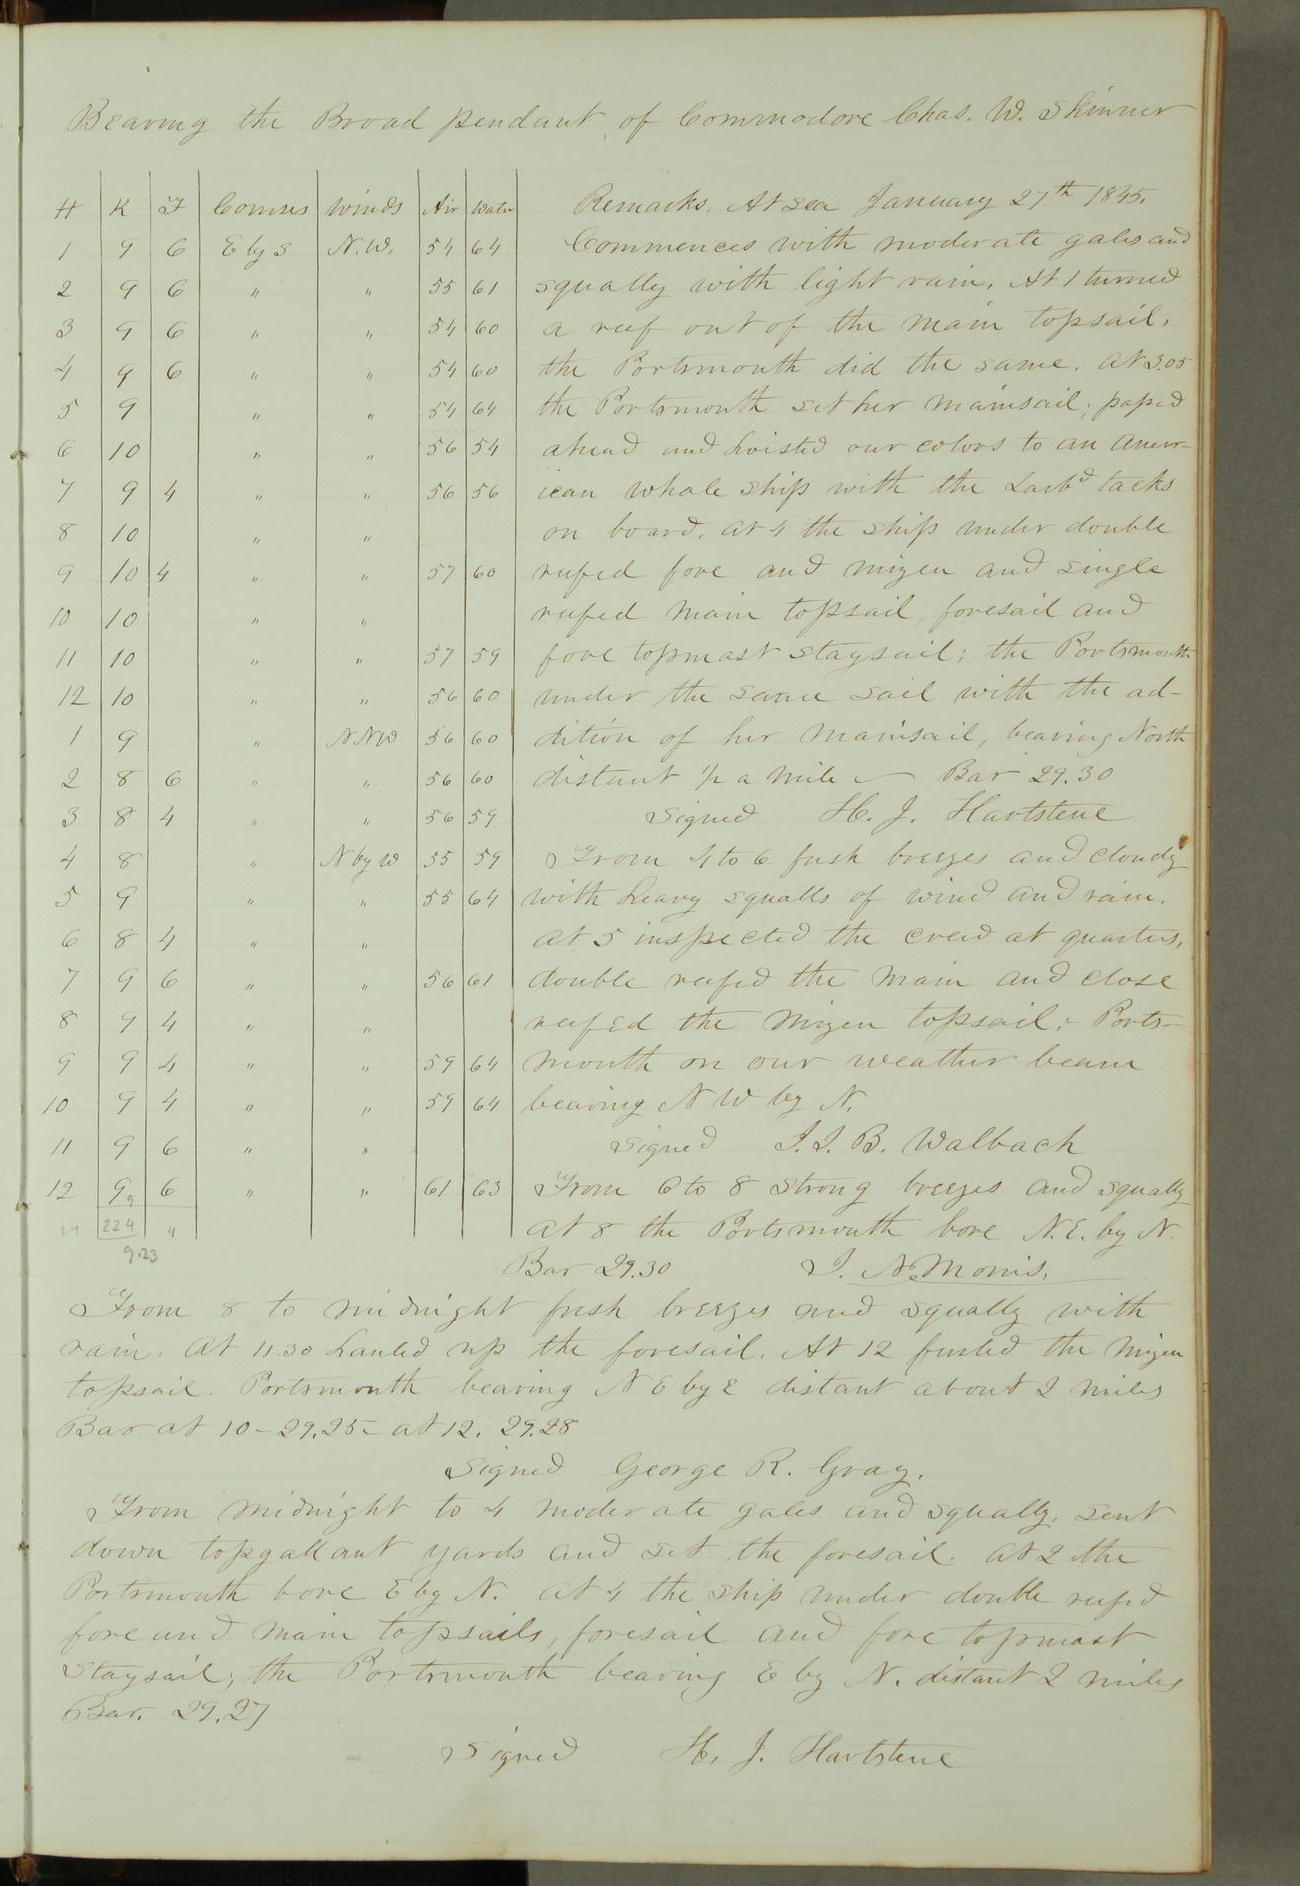 Bearing the Broad pendant of Commodore Chas. W. Skinner
H K F Courses Winds Air Water Remarks. At sea January 27th 1845.
1 9 6 E by S N.W. 54 64 Commences with moderate gales and
2 9 6 " " 55 61 squally with light rain. At 1 turned
3 9 6 " " 54 60 a reef out of the main topsail.
4 9 6 " " 54 60 the Portsmouth did the same. At 3.05
5 9 " " 54 64 the Portsmouth set her mainsail; passed
6 10 " " 56 54 ahead and hoisted our colors to an Amer-
7 9 4 " " 56 56 ican whale ship with the Larbd tacks
8 10 " " on board. At 4 the ship under double
9 10 4 " " 57 60 reefed fore and mizen and single
10 10 " " reefed main topsail, foresail and
11 10 " " 57 59 fore topmast staysail; the Portsmouth
12 10 " " 56 60 under the same sail with the ad-
1 9 " NNW 56 60 dition of her mainsail, bearing North
2 8 6 " " 56 60 distant 1/2 a mile Bar 29.30
3 8 4 " " 56 59 Signed H. J. Hartstene
4 8 " N by W 55 59 From 4 to 6 fresh breezes and cloudy
5 9 " " 55 64 with heavy squalls of wind and rain.
6 8 4 " " At 5 inspected the crew at quarters,
7 9 6 " " 56 61 double reefed the main and close
8 9 4 " " reefed the mizen topsail; Ports-
9 9 4 " " 59 64 mouth on our weather beam
10 9 4 " " 59 64 bearing N W by N.
11 9 6 " " Signed J. J. B. Walbach
12 9 6 " " 61 63 From 6 to 8 strong breezes and squally
224 4 At 8 the Portsmouth bore N.E. by N.
9.23 Bar 29.30 I. N. Morris.
From 8 to midnight fresh breezes and squally with
rain. At 11.30 hauled up the foresail. At 12 furled the mizen
topsail. Portsmouth bearing N E by E distant about 2 miles
Bar at 10 - 29.25 - at 12. 29.28
Signed George R. Gray.
From midnight to 4 moderate gales and squally. sent
down topgallant yards and set the foresail. At 2 the
Portsmouth bore E by N. At 4 the ship under double reefed
fore and main topsails, foresail and fore topmast
staysail; the Portsmouth bearing E by N. distant 2 miles
Bar. 29.27
Signed H. J. Hartstene